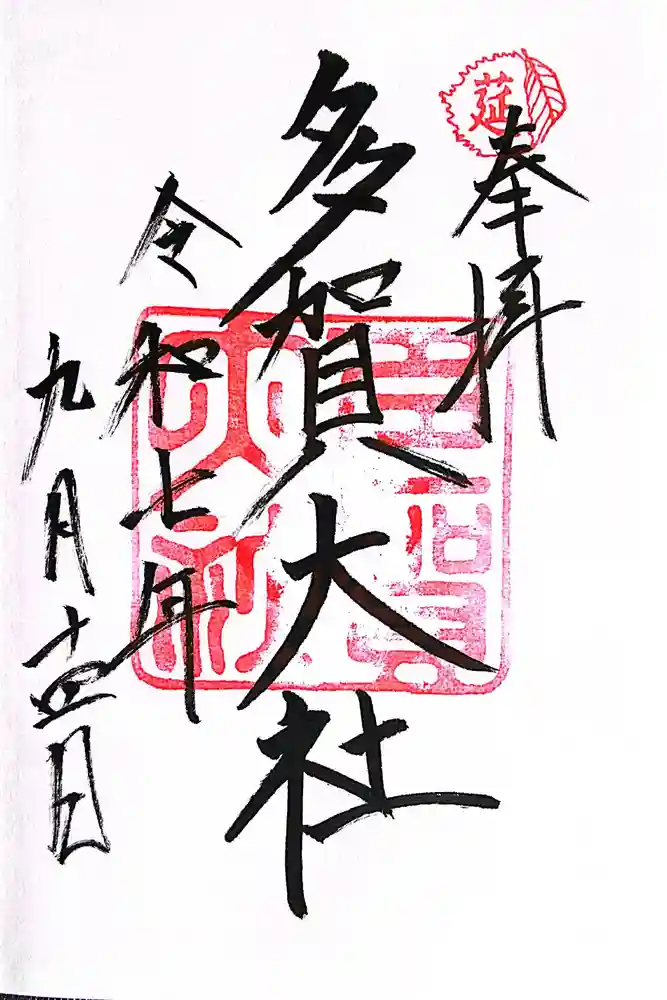 莚
奉拝
多賀大社
令和七年
九月十五日